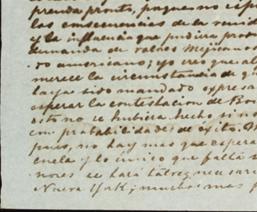 prenda pronto, porque no es
las consecuencias de la
y la influencia que pudiera
demanda de valores Mejicanos
do americano; yo creo que al
merece la circunstancia de q
haya sido mandado expresa
esperar la contestacion de Bos
sito no se hubiera hecho si no
con probabilidades de éxito.
pues, no hay mas que espera
cuela y lo único que falta
nores se hará
Nueva York; muchas mas